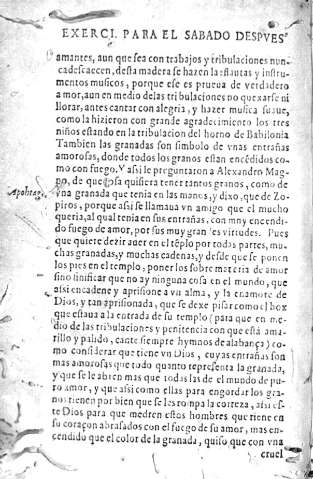 EXERCI. PARA EL SABADO DESPVES
amantes, aun que sea con trabajos y tribulaciones nun-
ca desfaecen, desta madera se hazen las flautas y instru-
mentos musicos, porque ese es prueua de verdadero
amor, aun en medio delas tribulaciones no quexarse ni
llorar, antes cantar con alegria, y hazer musica suaue,
como la hizieron con grande agradecimiento los tres
niños estando en la tribulacion del horno de Babilonia
Tambien las granadas son simbolo de vnas entrañas
amorosas, donde todos los granos estan encēdidos co-
mo con fuego. Y assi le preguntaron a Alexandro Mag-
no, de que cosa quisiera tener tantos granos, como de
Apohtag.
vna granada que tenia en las manos, y dixo, que de Zo-
piros, porque assi se llamaua vn amigo que el mucho
queria, al qual tenia en sus entrañas, con muy encendi-
do fuego de amor, por sus muy grandes virtudes. Pues
que quiere dezir auer en el tēplo por todas partes, mu-
chas granadas, y muchas cadenas, y desde que se ponen
los pies en el templo, poner los sobre materia de amor
sino sinificar que no ay ninguna cosa en el mundo, que
assi encadene y aprisione a vn alma, y la enamore de
Dios, y tan aprisionada, que se dexe pisar como el box
que estaua a la entrada de su templo (para que en me-
dio de las tribulaciones y penitencia con que está ama-
rillo y palido, cante siempre hymnos de alabança) co-
mo considerar que tiene vn Dios, cuyas entrañas son
mas amorosas que todo quanto representa la granada,
y que se le abren mas que todas las de el mundo de pu-
ro amor, y que assi como ellas para engordar los gra-
nos tienen por bien que se les rompa la corteza, assi es-
te Dios para que medren estos hombres que tiene en
su coraçon abrasados con el fuego de su amor, mas en-
cendido que el color de la granada, quiso que con vna
cruel